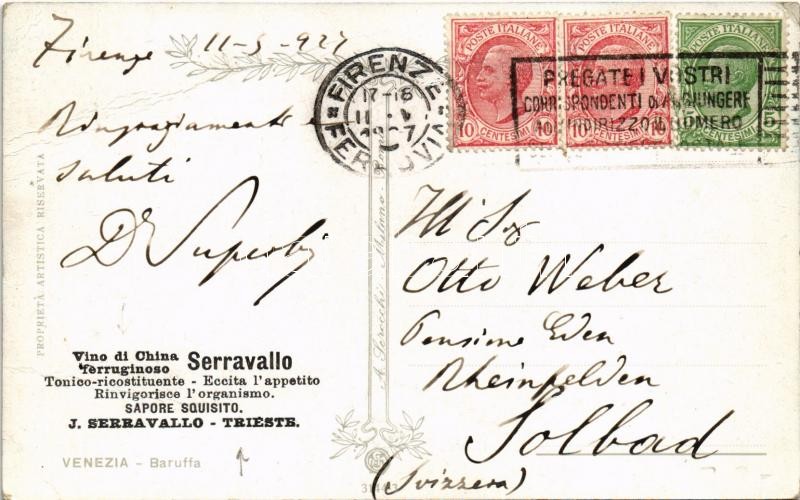 Firenze 11-5-927
Ringraziamenti
saluti
Dr Superbi
PROPRIETÀ ARTISTICA RISERVATA
Vino di China
ferruginoso Serravallo
Tonico-ricostituente - Eccita l'appetito
Rinvigorisce l'organismo.
SAPORE SQUISITO.
J. SERRAVALLO - TRIESTE.
VENEZIA - Baruffa
FIRENZE
17-18
FERROVIA
A. Scrocchi - Milano
POSTE ITALIANE
10 CENTESIMI 10
POSTE ITALIANE
10 CENTESIMI 10
POSTE ITALIANE
CENTESIMI 5
PREGATE I VOSTRI
CORRISPONDENTI DI AGGIUNGERE
INDIRIZZO IL NUMERO
Ill Sig
Otto Weber
Pensione Eden
Rheinfelden
Solbad
(Svizzera)